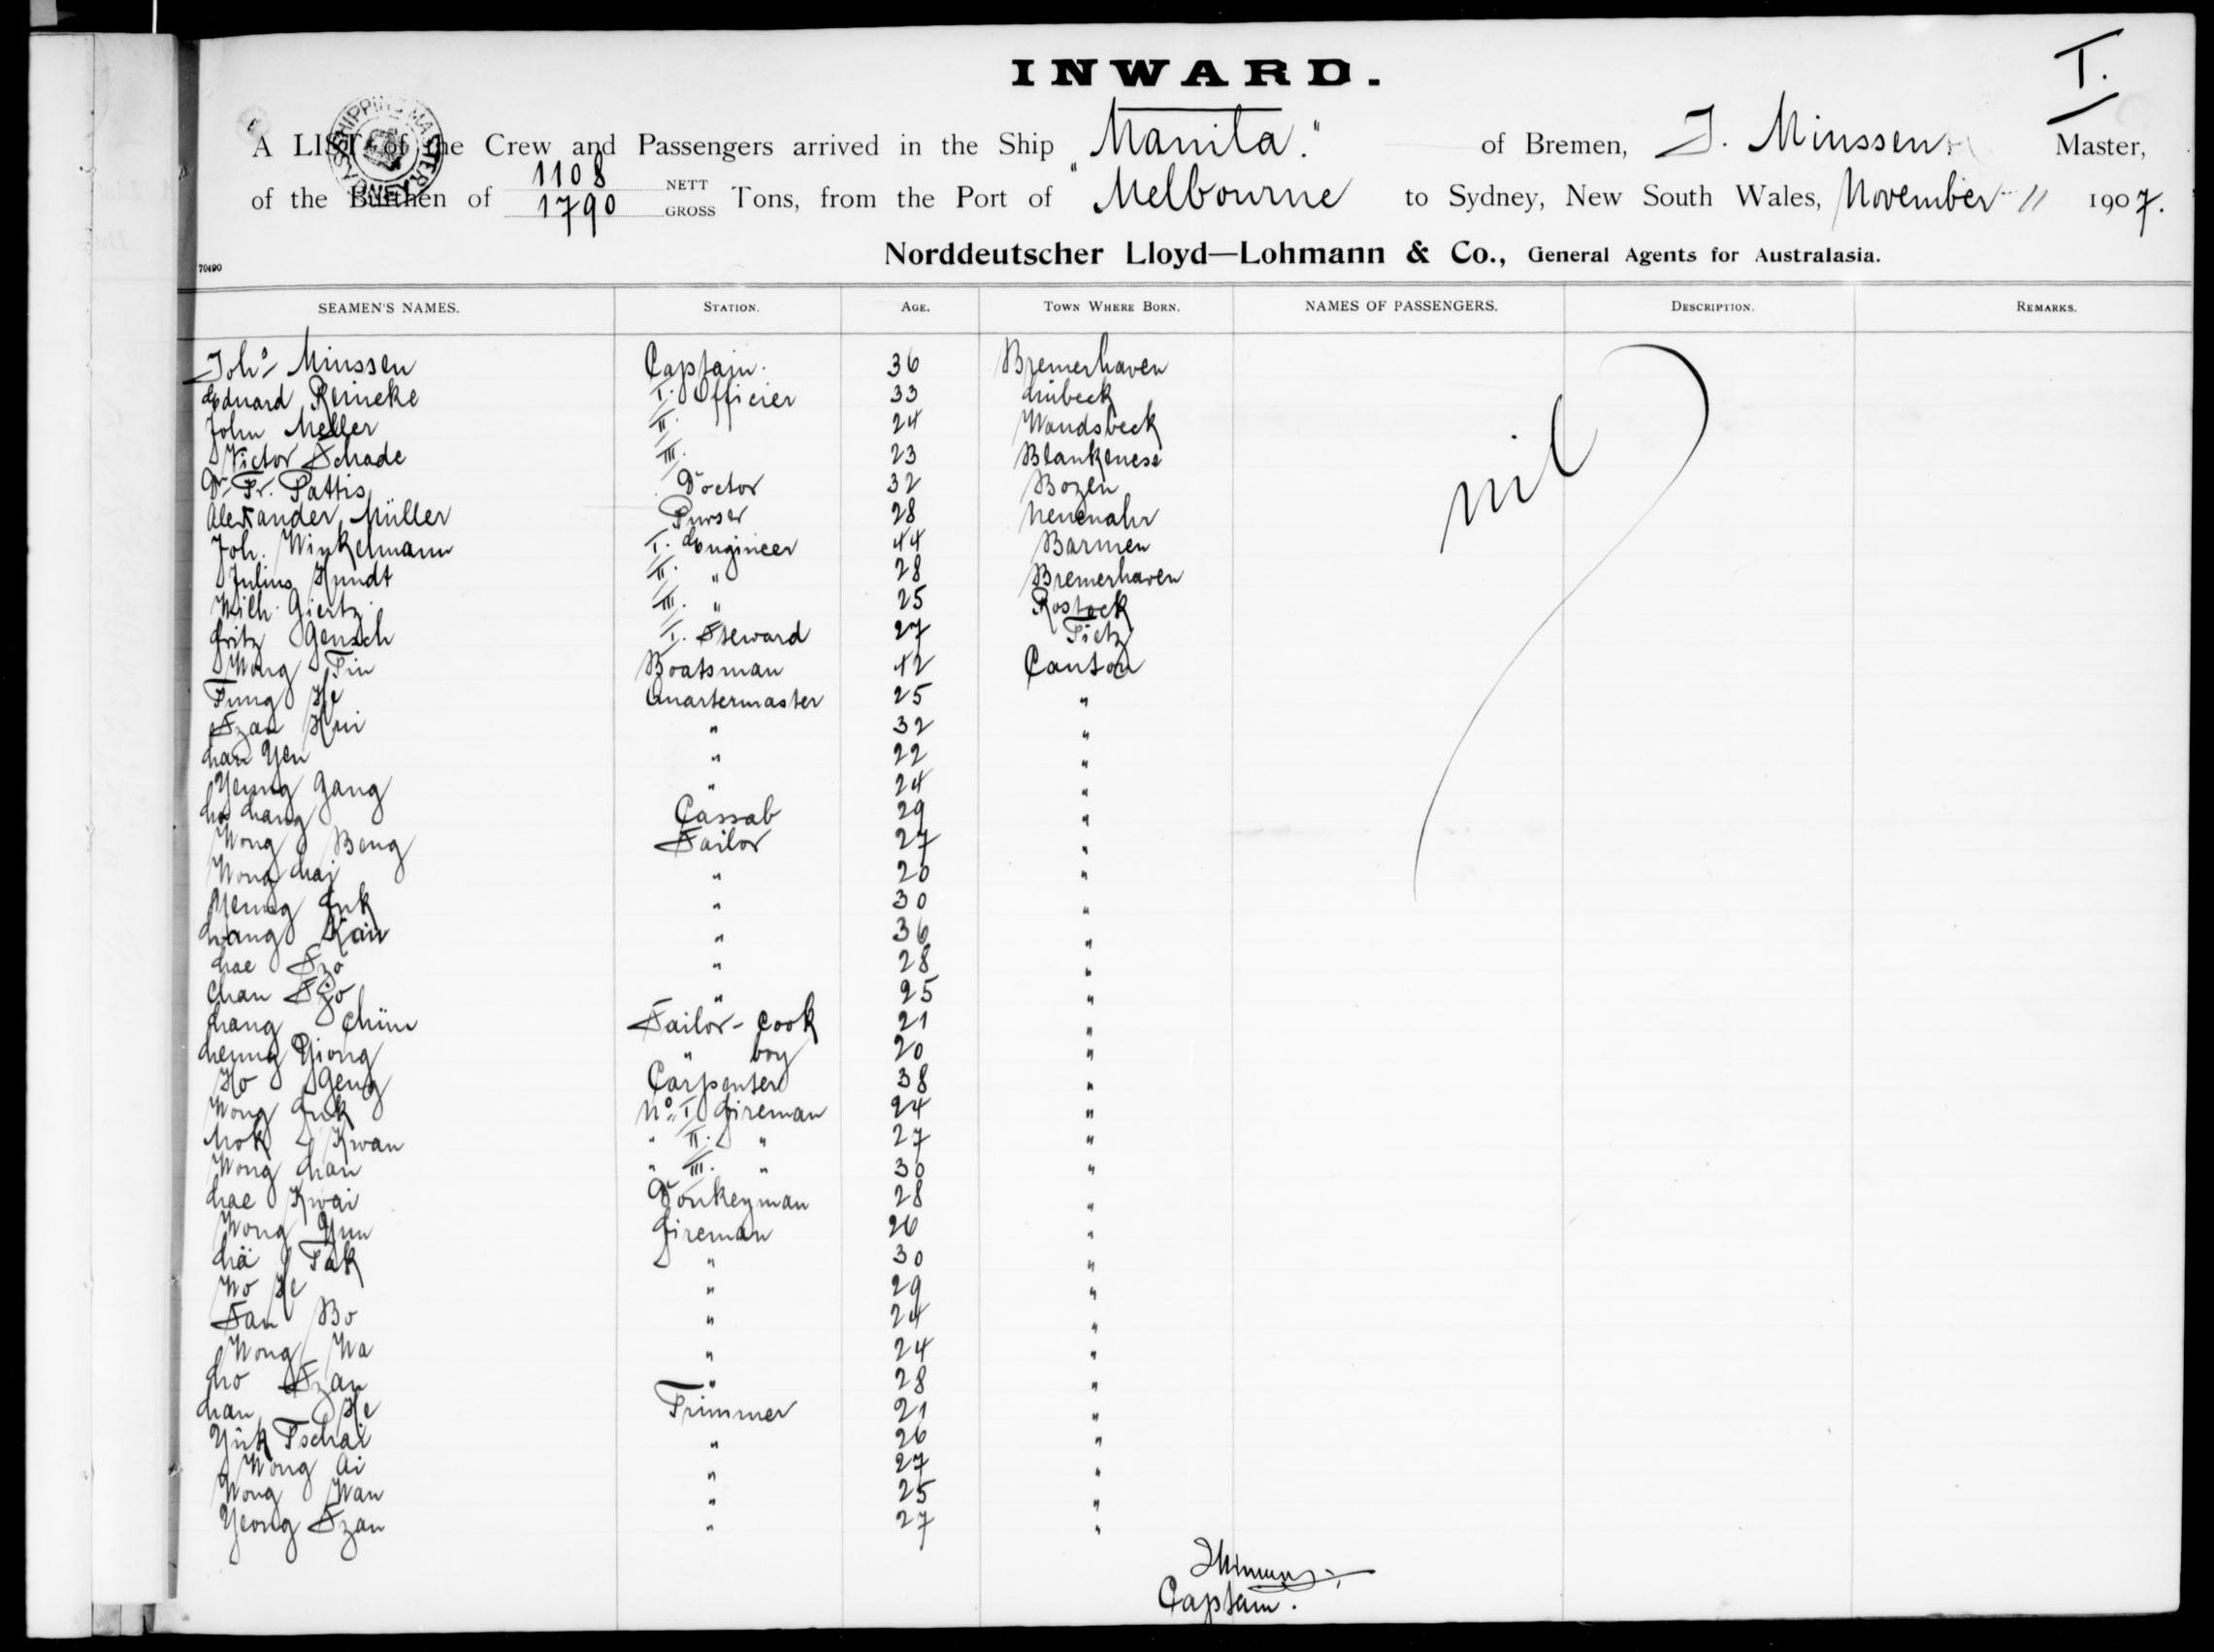 I.
INWARD.
A LIST of the Crew and Passengers arrived in the Ship "Manila." of Bremen, J. Minssen Master,
of the Burthen of 1108 NETT 1790 GROSS Tons, from the Port of Melbourne to Sydney, New South Wales, November 11 1907.
Norddeutscher Lloyd—Lohmann & Co., General Agents for Australasia.
70490
SEAMEN'S NAMES. STATION. AGE. TOWN WHERE BORN. NAMES OF PASSENGERS. DESCRIPTION. REMARKS.
Johs Minssen Captain. 36 Bremerhaven
Eduard Reineke I. Officier 33 Lübeck
John Meller II. 24 Wandsbeck
Victor Schade III. 23 Blankenese
Dr. Fr. Pattis Doctor 32 Bozen
Alexander Müller Purser 28 Neuenahr
Joh. Winkelmann I. Engineer 44 Barmen
Julius Hundt II. " 28 Bremerhaven
Wilh. Giertz III. " 25 Rostock
Fritz Gensch I. Steward 27 Tietz
Wong Tin Boatsman 42 Canton
Fung He Quartermaster 25 "
Szan Hui " 32 "
Lan Yen " 22 "
Yeung Gang " 24 "
Lo Lang Cassab 29 "
Wong Beng Sailor 27 "
Wong Lai " 20 "
Yeung Fuk " 30 "
Lang Kan " 36 "
Lae Szo " 28 "
Chan Szo " 25 "
Lang Chim Sailor-Cook 21 "
Leung Yiong " boy 20 "
Ho Geng Carpenter 38 "
Wong Fuk No. I Fireman 24 "
Mok Kwan " II. " 27 "
Wong Lan " III. " 30 "
Lae Kwai Donkeyman 28 "
Wong Yun Fireman 26 "
Lä Tak " 30 "
Wo He " 29 "
San Bo " 24 "
Wong Wa " 24 "
Lo Szan " 28 "
Lan He Trimmer 21 "
Yük Tschai " 26 "
Wong Ai " 27 "
Wong Wan " 25 "
Yeong Szan " 27 "
nil
Captain.